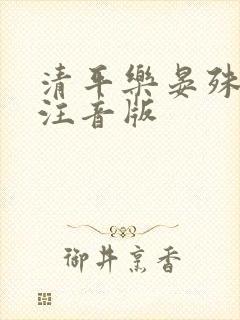 清平樂晏殊
注音版
御井烹香